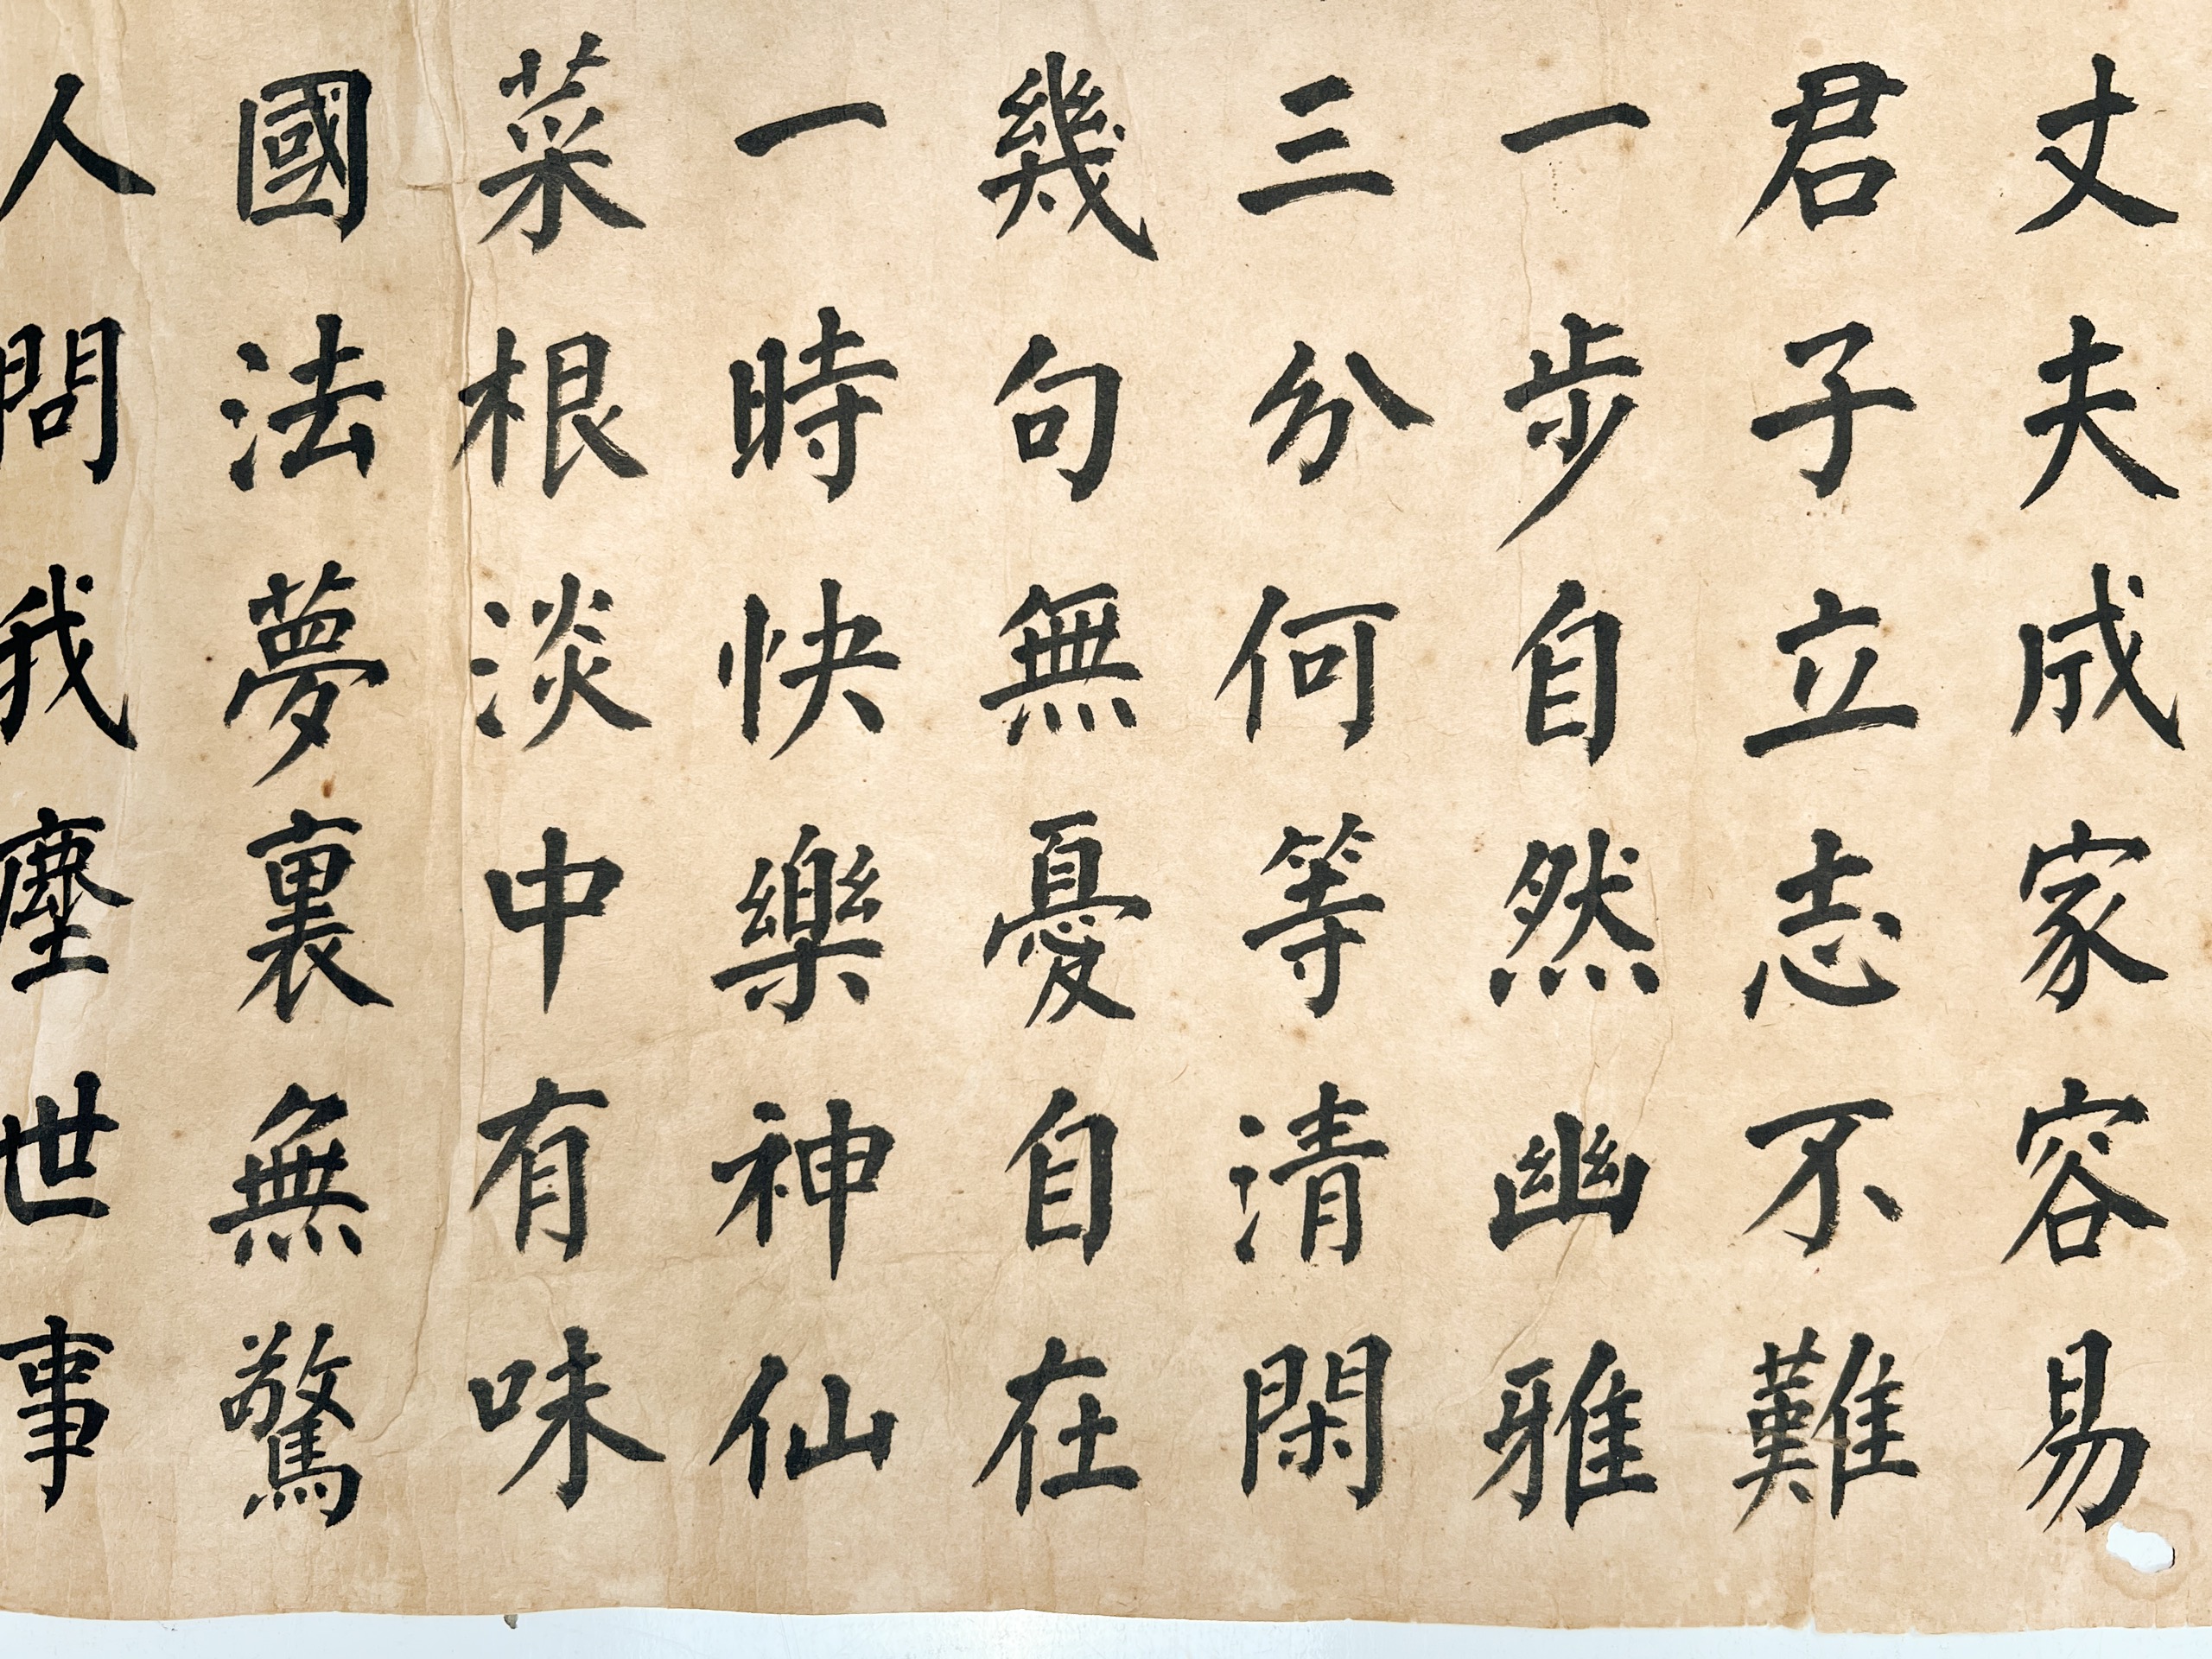 丈夫成家容易
君子立志不難
一步自然幽雅
三分何等清閑
幾句無憂自在
一時快樂神仙
菜根淡中有味
國法夢裏無驚
人問我塵世事